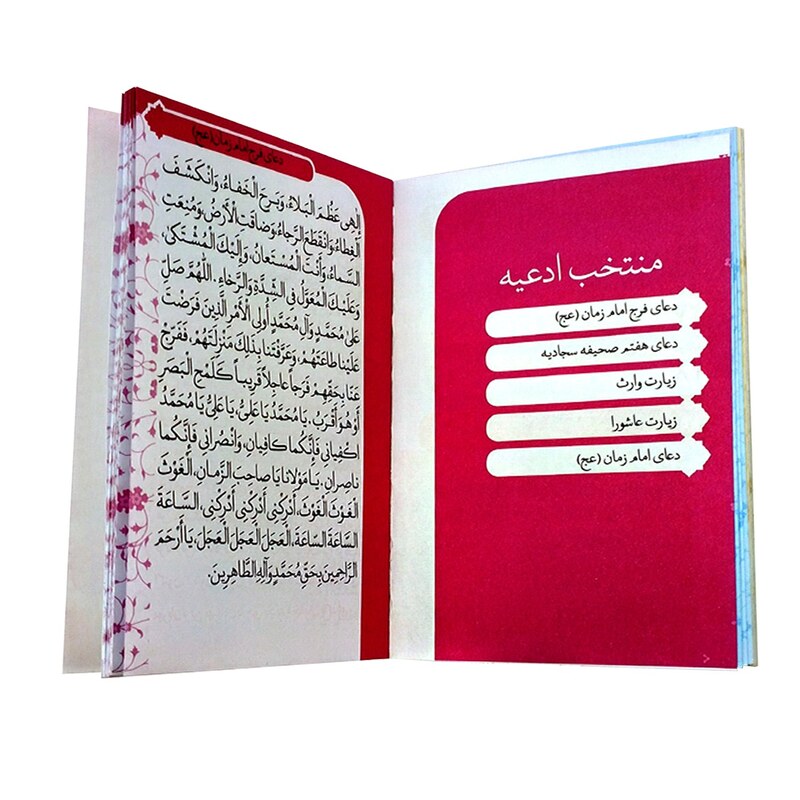 منتخب ادعیه
دعای فرج امام زمان (عج)
دعای هفتم صحیفه سجادیه
زیارت وارث
زیارت عاشورا
دعای امام زمان (عج)
دعای فرج امام زمان (عج)
اِلٰهِی عَظُمَ الْبَلاءُ، وَبَرِحَ الْخَفاءُ، وَانْكَشَفَ
الْغِطاءُ، وَانْقَطَعَ الرَّجاءُ، وَضاقَتِ الْأَرْضُ، وَمُنِعَتِ
السَّماءُ، وَأَنْتَ الْمُسْتَعانُ، وَإِلَيْكَ الْمُشْتَكىٰ،
وَعَلَيْكَ الْمُعَوَّلُ فِی الشِّدَّةِ وَالرَّخاءِ. اللّٰهُمَّ صَلِّ
عَلىٰ مُحَمَّدٍ وَآلِ مُحَمَّدٍ أُولِی الْأَمْرِ الَّذِينَ فَرَضْتَ
عَلَيْنا طاعَتَهُمْ، وَعَرَّفْتَنا بِذٰلِكَ مَنْزِلَتَهُمْ، فَفَرِّجْ
عَنّا بِحَقِّهِمْ فَرَجاً عاجِلاً قَرِيباً كَلَمْحِ الْبَصَرِ
أَوْ هُوَ أَقْرَبُ، يا مُحَمَّدُ يا عَلِیُّ، يا عَلِیُّ يا مُحَمَّدُ
اكْفِيانِی فَإِنَّكُما كافِيانِ، وَانْصُرانِی فَإِنَّكُما
ناصِرانِ. يا مَوْلانا يا صاحِبَ الزَّمانِ، الْغَوْثَ
الْغَوْثَ الْغَوْثَ، أَدْرِكْنِی أَدْرِكْنِی أَدْرِكْنِی، السَّاعَةَ
السَّاعَةَ السَّاعَةَ، الْعَجَلَ الْعَجَلَ الْعَجَلَ، يا أَرْحَمَ
الرَّاحِمِينَ بِحَقِّ مُحَمَّدٍ وَآلِهِ الطَّاهِرِينَ.